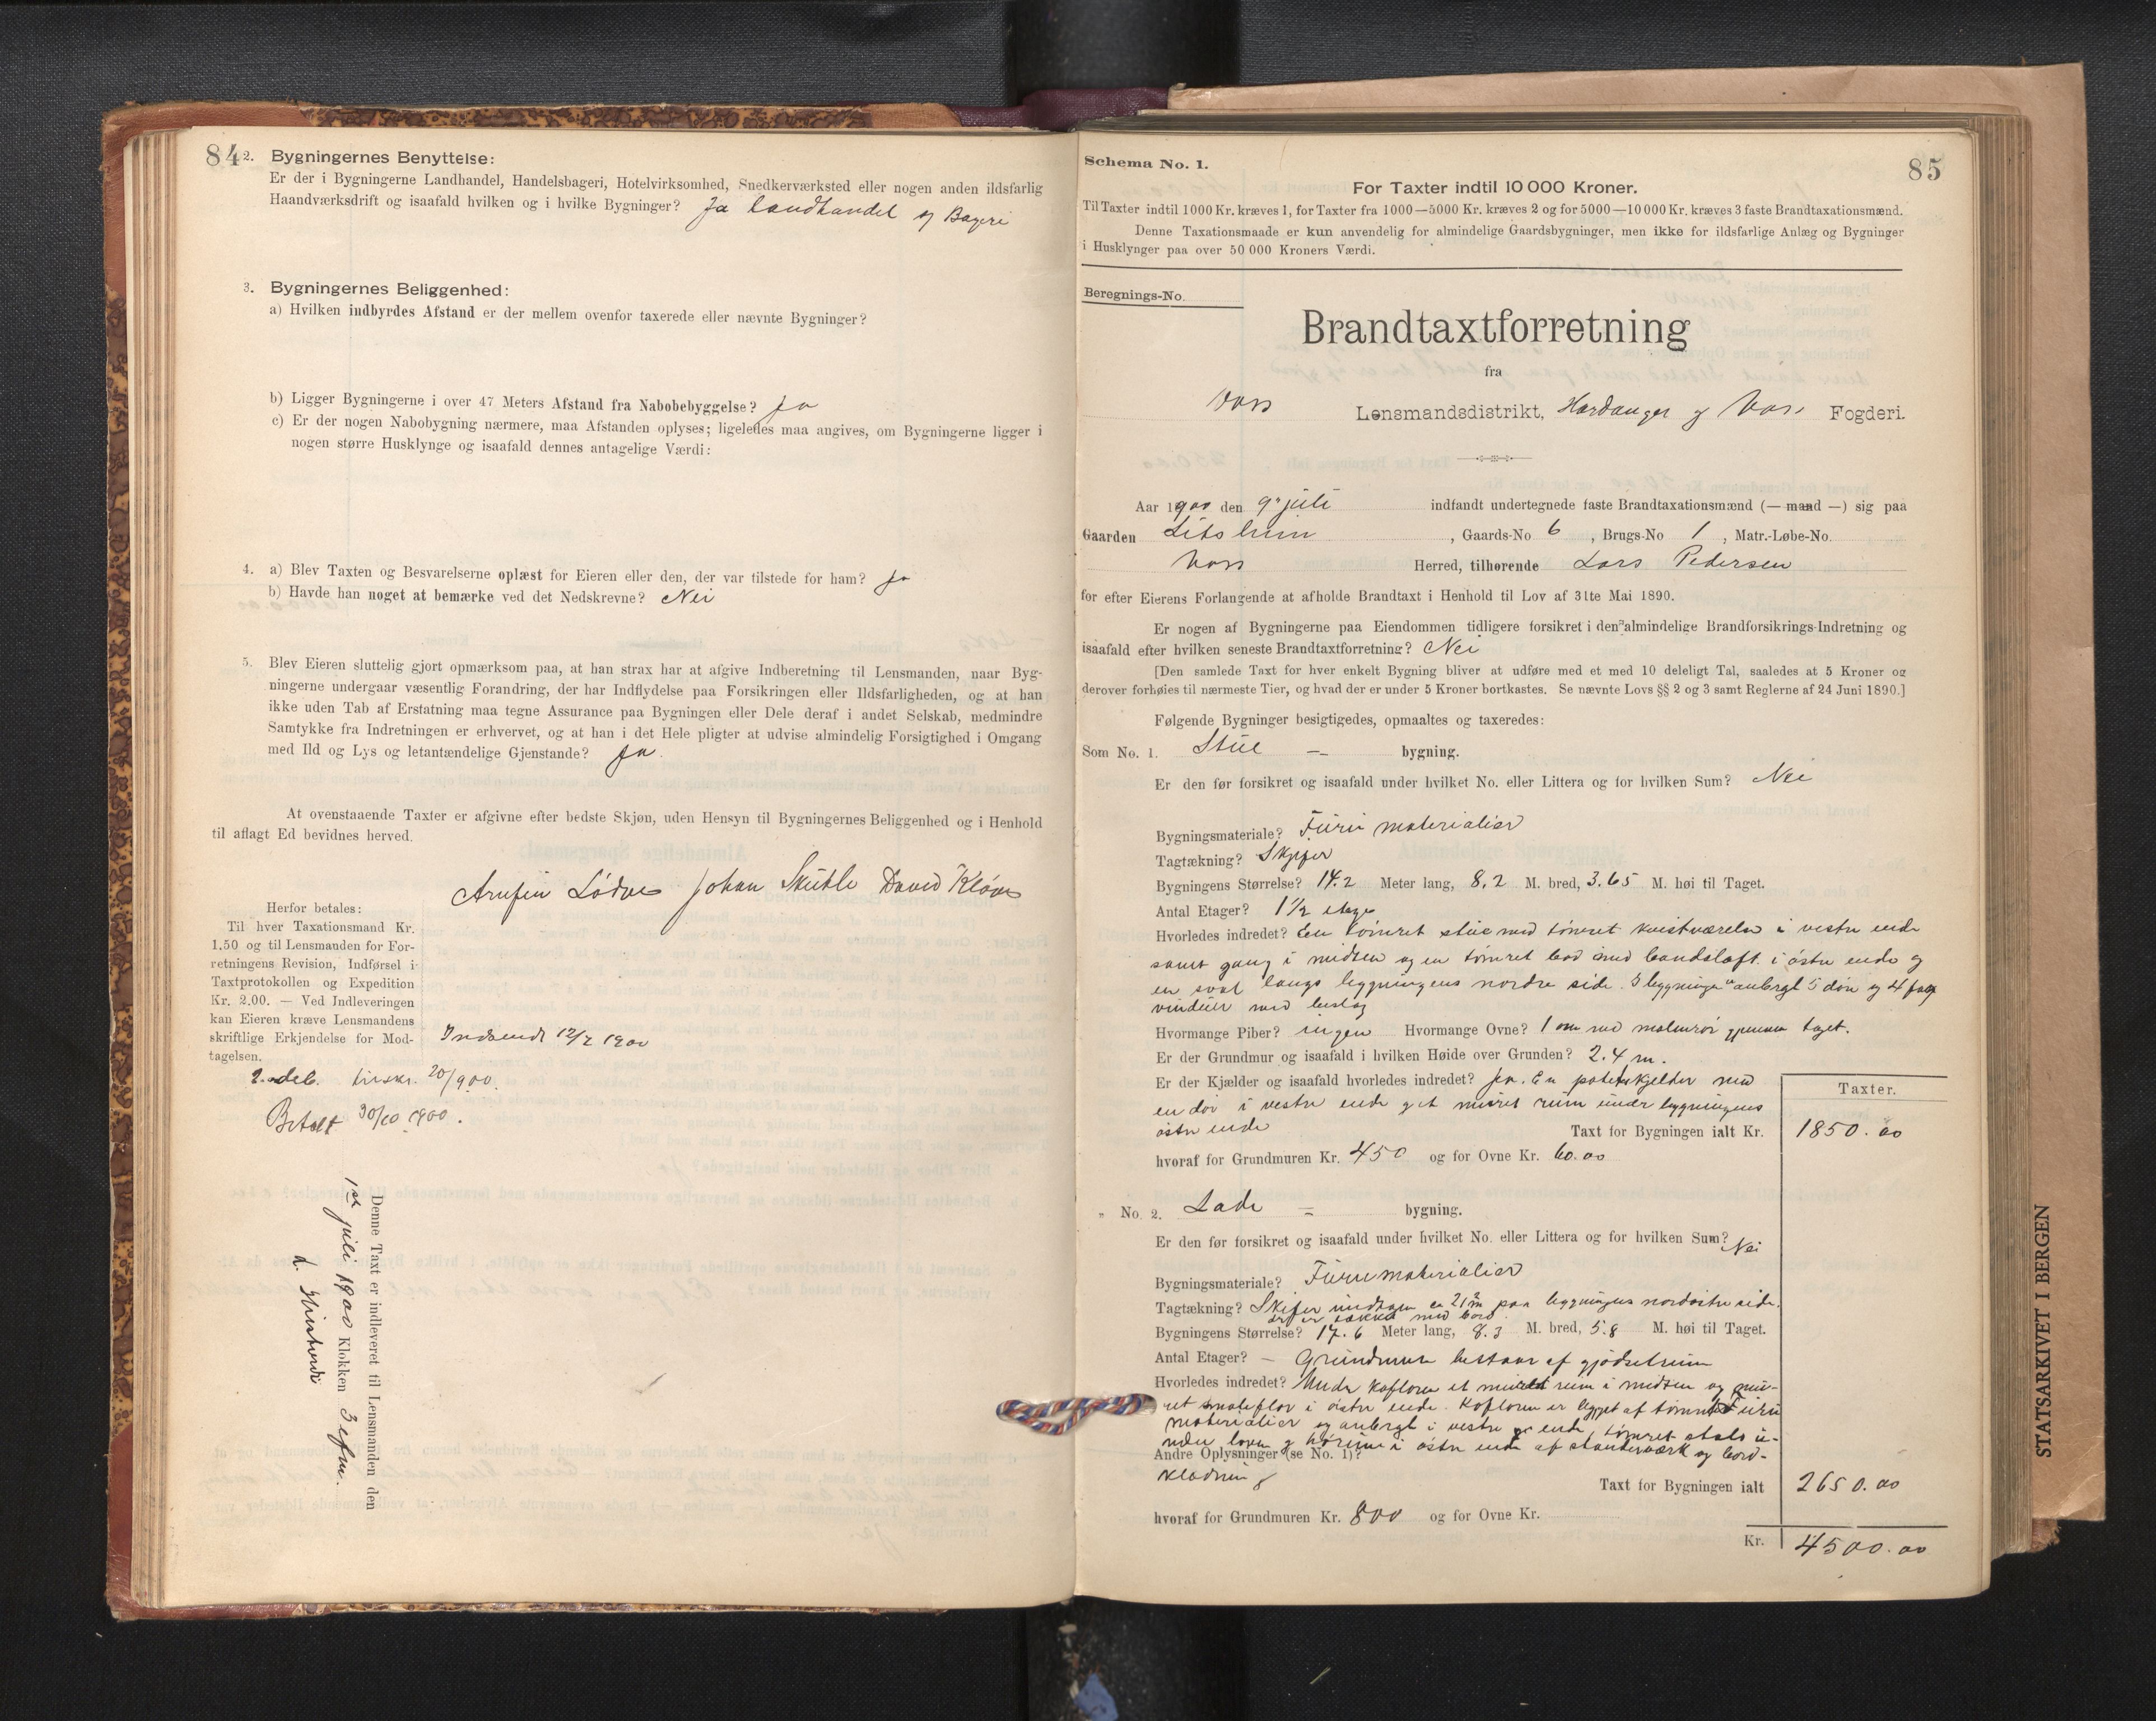 84
2. Bygningernes Benyttelse:
Er der i Bygningerne Landhandel, Handelsbageri, Hotelvirksomhed, Snedkerværksted eller nogen anden ildsfarlig
Haandværksdrift og isaafald hvilken og i hvilke Bygninger? Ja Landhandel og Bageri
3. Bygningernes Beliggenhed:
a) Hvilken indbyrdes Afstand er der mellem ovenfor taxerede eller nævnte Bygninger?
b) Ligger Bygningerne i over 47 Meters Afstand fra Nabobebyggelse? Ja
c) Er der nogen Nabobygning nærmere, maa Afstanden oplyses; ligeledes maa angives, om Bygningerne ligger i
nogen større Husklynge og isaafald dennes antagelige Værdi:
4. a) Blev Taxten og Besvarelserne oplæst for Eieren eller den, der var tilstede for ham? Ja
b) Havde han noget at bemærke ved det Nedskrevne? Nei
5. Blev Eieren sluttelig gjort opmærksom paa, at han strax har at afgive Indberetning til Lensmanden, naar Byg-
ningerne undergaar væsentlig Forandring, der har Indflydelse paa Forsikringen eller Ildsfarligheden, og at han
ikke uden Tab af Erstatning maa tegne Assurance paa Bygningen eller Dele deraf i andet Selskab, medmindre
Samtykke fra Indretningen er erhvervet, og at han i det Hele pligter at udvise almindelig Forsigtighed i Omgang
med Ild og Lys og letantændelige Gjenstande? Ja.
At ovenstaaende Taxter er afgivne efter bedste Skjøn, uden Hensyn til Bygningernes Beliggenhed og i Henhold
til aflagt Ed bevidnes herved.
Johan Skutle David Kløve
Herfor betales:
Til hver Taxationsmand Kr.
1,50 og til Lensmanden for For-
retningens Revision, Indførsel i
Taxtprotokollen og Expedition
Kr. 2.00. — Ved Indleveringen
kan Eieren kræve Lensmandens
skriftlige Erkjendelse for Mod-
tagelsen.
Indsendt 12/7 1900
20/9 00.
Betalt 30/10 1900.
Denne Taxt er indleveret til Lensmanden den
1ste juli 1900 Klokken 3 efm.
85
Schema No. 1.
For Taxter indtil 10 000 Kroner.
Til Taxter indtil 1000 Kr. kræves 1, for Taxter fra 1000—5000 Kr. kræves 2 og for 5000—10 000 Kr. kræves 3 faste Brandtaxationsmænd.
Denne Taxationsmaade er kun anvendelig for almindelige Gaardsbygninger, men ikke for ildsfarlige Anlæg og Bygninger
i Husklynger paa over 50 000 Kroners Værdi.
Beregnings-No.
Brandtaxtforretning
fra
Voss Lensmandsdistrikt, Hardanger og Voss Fogderi.
Aar 1900 den 9de juli indfandt undertegnede faste Brandtaxationsmænd (— mand —) sig paa
Gaarden , Gaards-No 6 , Brugs-No 1 , Matr.-Løbe-No.
Voss Herred, tilhørende Lars Pedersen
for efter Eierens Forlangende at afholde Brandtaxt i Henhold til Lov af 31te Mai 1890.
Er nogen af Bygningerne paa Eiendommen tidligere forsikret i den almindelige Brandforsikrings-Indretning og
isaafald efter hvilken seneste Brandtaxtforretning? Nei
[Den samlede Taxt for hver enkelt Bygning bliver at udføre med et med 10 deleligt Tal, saaledes at 5 Kroner og
derover forhøies til nærmeste Tier, og hvad der er under 5 Kroner bortkastes. Se nævnte Lovs §§ 2 og 3 samt Reglerne af 24 Juni 1890.]
Følgende Bygninger besigtigedes, opmaaltes og taxeredes:
Som No. 1. Stue — bygning.
Er den før forsikret og isaafald under hvilket No. eller Littera og for hvilken Sum? Nei
Bygningsmateriale? Furu materialier
Tagtækning? Skifer
Bygningens Størrelse? 14.2 Meter lang, 8.2 M. bred, 3.65 M. høi til Taget.
Antal Etager? 1½ etage
Hvorledes indredet? En tømret stue med tømret kvistværelse i vestre ende
samt gang i midten og en tømret bod med bordsloft i østre ende og
en sval langs bygningens nordre side. I bygningen anbragt 5 døre og 4 fag
vinduer med beslag
Hvormange Piber? ingen Hvormange Ovne? 1 ovn med malmrør gjennem taget.
Er der Grundmur og isaafald i hvilken Høide over Grunden? 2.4 m.
Er der Kjælder og isaafald hvorledes indredet? Ja. En potetkjelder med
en dør i vestre ende og et muret rum under bygningens
østre ende
Taxter.
Taxt for Bygningen ialt Kr. 1850.00
hvoraf for Grundmuren Kr. 450 og for Ovne Kr. 60.00
„ No. 2. Lade — bygning.
Er den før forsikret og isaafald under hvilket No. eller Littera og for hvilken Sum? Nei
Bygningsmateriale? Furumaterialier
Tagtækning? Skifer undtagen ca 21 m² paa bygningens nordøstre side,
der er tækket med bord
Bygningens Størrelse? 17.6 Meter lang, 8.3 M. bred, 5.8 M. høi til Taget.
Antal Etager? — Grundmuren bestaar af gjødselrum
Hvorledes indredet? Under kofloren et muret rum i midten og mu-
ret smaleflor i østre ende. Kofloren er bygget af tømret Furu
materialier og anbragt i vestre ende, tømret stolo
under loven og i østre ende af standerværk og bord-
Andre Oplysninger (se No. 1)?
klædning
Taxt for Bygningen ialt 2650.00
hvoraf for Grundmuren Kr. 800 og for Ovne Kr.
Kr. 4500.00
STATSARKIVET I BERGEN